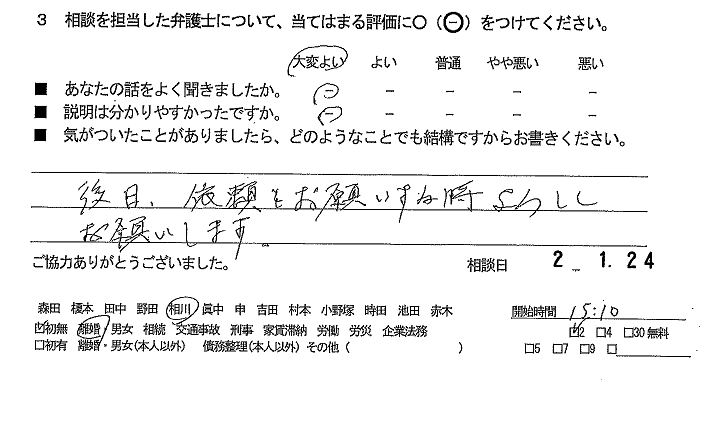 3 相談を担当した弁護士について、当てはまる評価に○（㊀）をつけてください。
大変よい よい 普通 やや悪い 悪い
■ あなたの話をよく聞きましたか。 － － － － －
■ 説明は分かりやすかったですか。 － － － － －
■ 気がついたことがありましたら、どのようなことでも結構ですからお書きください。
後日、依頼をお願いする時よろしく
お願いします。
ご協力ありがとうございました。 相談日 2 . 1. 24
森田 榎本 田中 野田 相川 眞中 申 吉田 村本 小野塚 時田 池田 赤木 開始時間 15:10
☑初無 離婚・男女 相続 交通事故 刑事 家賃滞納 労働 労災 企業法務 ☑2 □4 □30 無料
□初有 離婚・男女(本人以外) 債務整理(本人以外) その他 ( ) □5 □7 □9 □